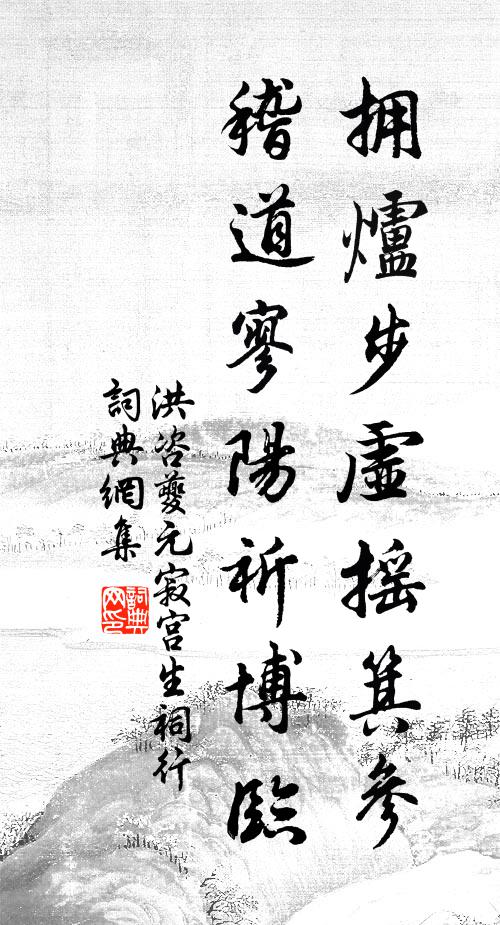 拥爐步虛摇箕參
稽道寥陽祈博臨
洪咨夔元寂宫生祠行
詞典網集
詞典網印